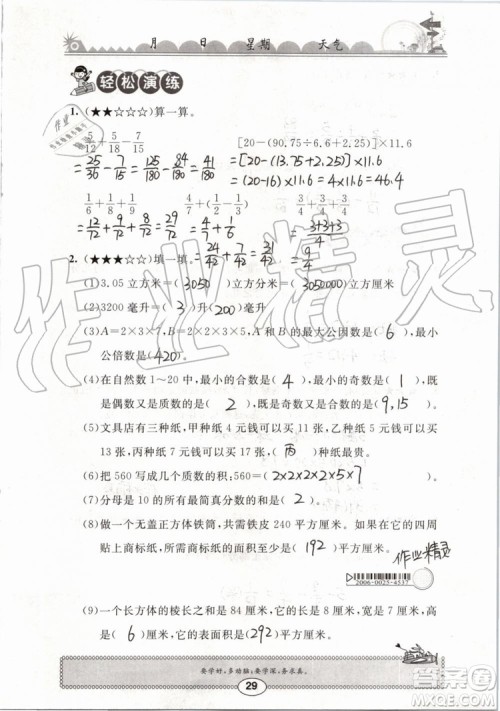 月 日 星期 天气
轻松演练
1. (★★☆☆☆)算一算。
5/12+5/18-7/15 [20-(90.75÷6.6+2.25)]×11.6
=25/36-7/15=125/180-84/180=41/180 =[20-(13.75+2.25)]×11.6
=(20-16)×11.6=4×11.6=46.4
1/6+1/8+1/9 4/7+(1/2-1/3) 3/4+3/4+3/4
=12/72+9/72+8/72=29/72 =4/7+1/6 =3+3+3/4
=24/42+7/42=31/42 =9/4
2. (★★★☆☆)填一填。
(1)3.05 立方米=( 3050 )立方分米=( 3050000 )立方厘米
(2)3200 毫升=( 3 )升( 200 )毫升
(3)A=2×3×7,B=2×3×2×5,A 和 B 的最大公因数是( 6 ),最小
公倍数是( 420 )。
(4)在自然数 1～20 中,最小的合数是( 4 ),最小的奇数是( 1 ),既
是偶数又是质数的是( 2 ),既是奇数又是合数的是( 9,15 )。
(5)文具店有三种纸,甲种纸 4 元钱可以买 11 张,乙种纸 5 元钱可以买
13 张,丙种纸 7 元钱可以买 17 张,( 丙 )种纸最贵。
(6)把 560 写成几个质数的积:560=( 2×2×2×2×5×7 )
(7)分母是 10 的所有最简真分数的和是( 2 )
(8)做一个无盖正方体铁筒,共需铁皮 240 平方厘米。如果在它的四周
贴上商标纸,所需商标纸的面积至少是( 192 )平方厘米。
作业精灵
2006-0025-4537
(9)一个长方体的棱长之和是 84 厘米,它的长是 8 厘米,宽是 7 厘米,高
是( 6 )厘米,它的表面积是( 292 )平方厘米。
要学好,多动脑;要学深,务求真。
29
作业精灵
答案圈